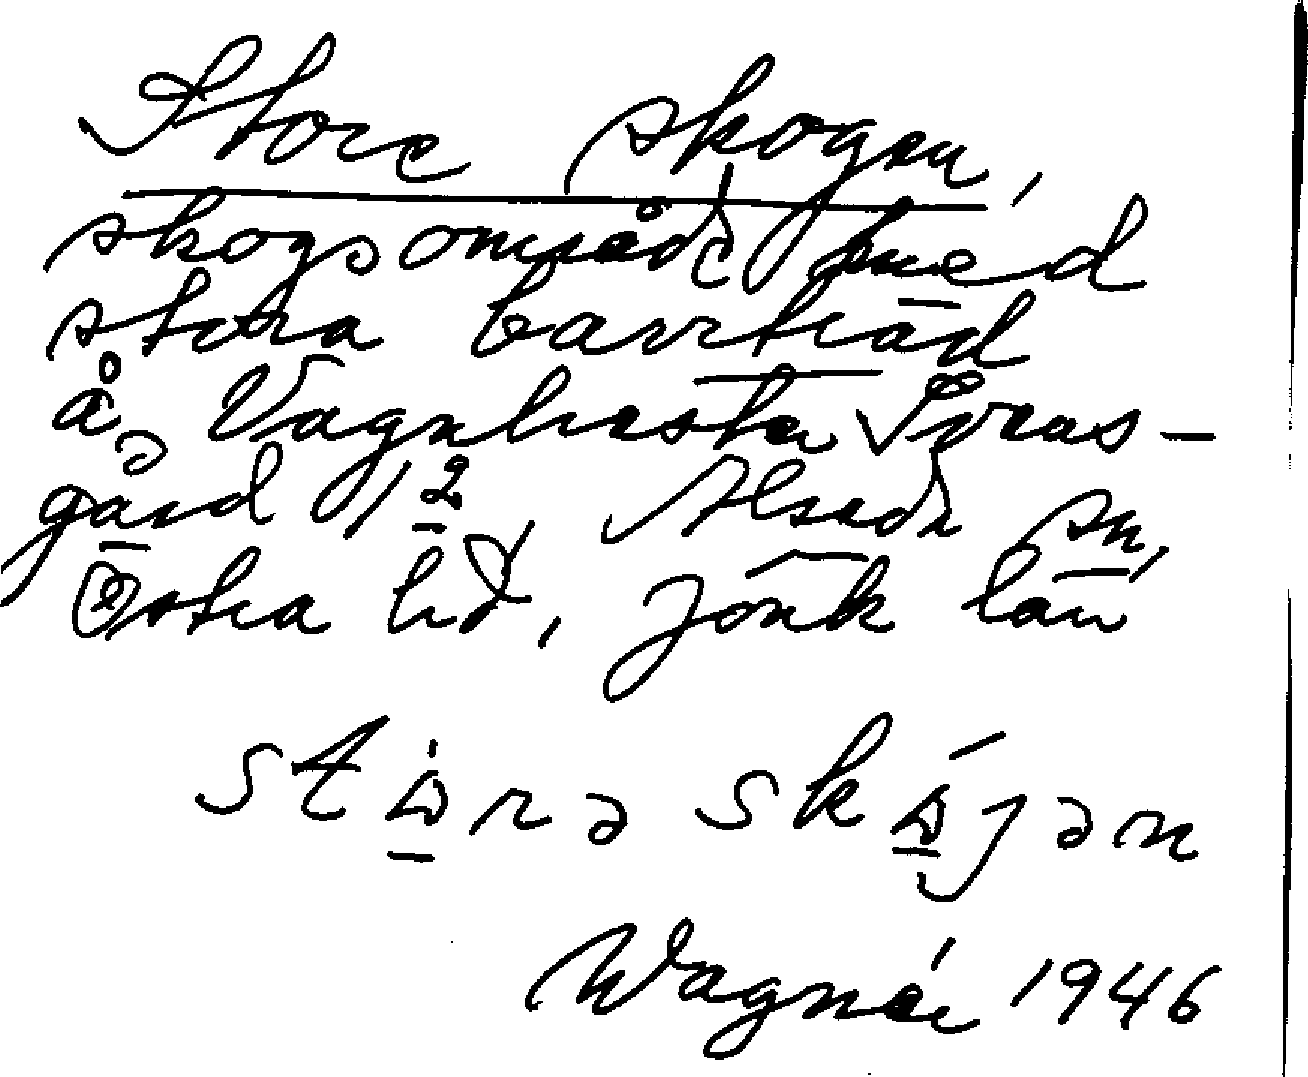 Store skogen,
skogsområde med
stora barrträd
å Vagnhester Sveas-
gård 1 2 Alseda sn,
Östra hd, Jönk län
Wagnér 1946